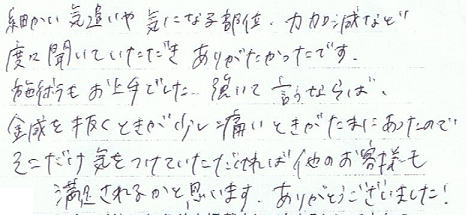 細かい気遣いや気になる部位、力加減など
度に聞いていただき ありがたかったです.
施術もお上手でした. 強いて言うならば、
金鍼を抜くときが少し痛いときがたまにあったので
そこだけ気をつけていただければ他のお客様も
満足されるかと思います. ありがとうございました!